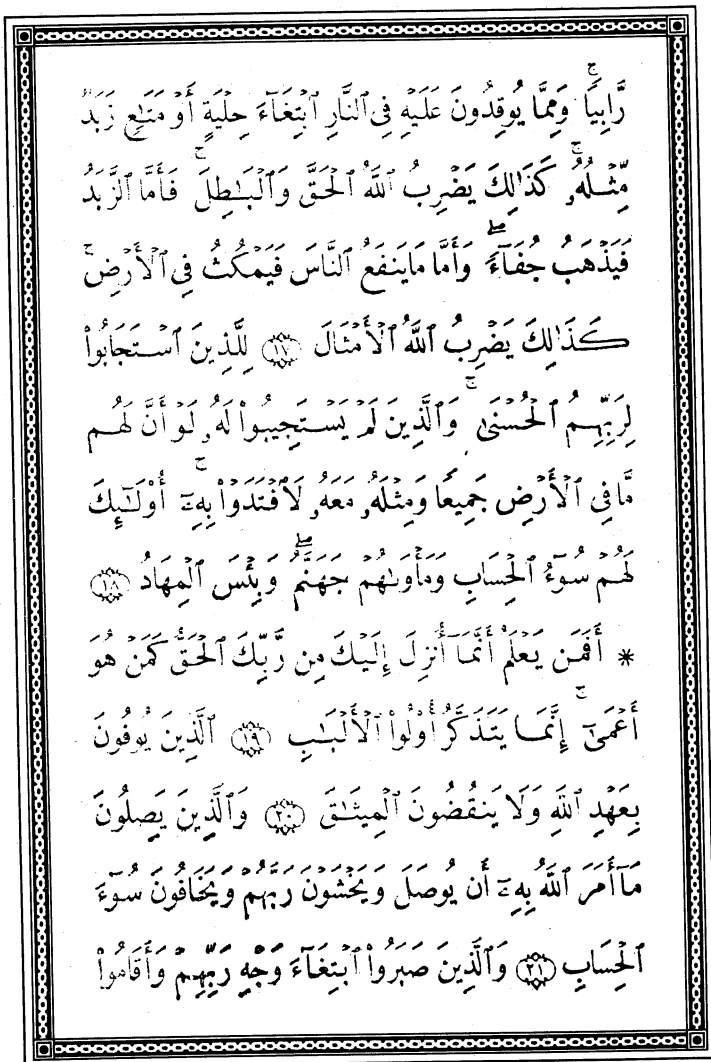 رَّابِيًا ۚ وَمِمَّا يُوقِدُونَ عَلَيْهِ فِى ٱلنَّارِ ٱبْتِغَآءَ حِلْيَةٍ أَوْ مَتَٰعٍ زَبَدٌ
مِّثْلُهُۥ ۚ كَذَٰلِكَ يَضْرِبُ ٱللَّهُ ٱلْحَقَّ وَٱلْبَٰطِلَ ۚ فَأَمَّا ٱلزَّبَدُ
فَيَذْهَبُ جُفَآءً ۖ وَأَمَّا مَا يَنفَعُ ٱلنَّاسَ فَيَمْكُثُ فِى ٱلْأَرْضِ ۚ
كَذَٰلِكَ يَضْرِبُ ٱللَّهُ ٱلْأَمْثَالَ ١٧ لِلَّذِينَ ٱسْتَجَابُوا۟
لِرَبِّهِمُ ٱلْحُسْنَىٰ ۚ وَٱلَّذِينَ لَمْ يَسْتَجِيبُوا۟ لَهُۥ لَوْ أَنَّ لَهُم
مَّا فِى ٱلْأَرْضِ جَمِيعًا وَمِثْلَهُۥ مَعَهُۥ لَٱفْتَدَوْا۟ بِهِۦٓ ۚ أُو۟لَٰٓئِكَ
لَهُمْ سُوٓءُ ٱلْحِسَابِ وَمَأْوَىٰهُمْ جَهَنَّمُ ۖ وَبِئْسَ ٱلْمِهَادُ ١٨
* أَفَمَن يَعْلَمُ أَنَّمَآ أُنزِلَ إِلَيْكَ مِن رَّبِّكَ ٱلْحَقُّ كَمَنْ هُوَ
أَعْمَىٰٓ ۚ إِنَّمَا يَتَذَكَّرُ أُو۟لُوا۟ ٱلْأَلْبَٰبِ ١٩ ٱلَّذِينَ يُوفُونَ
بِعَهْدِ ٱللَّهِ وَلَا يَنقُضُونَ ٱلْمِيثَٰقَ ٢٠ وَٱلَّذِينَ يَصِلُونَ
مَآ أَمَرَ ٱللَّهُ بِهِۦٓ أَن يُوصَلَ وَيَخْشَوْنَ رَبَّهُمْ وَيَخَافُونَ سُوٓءَ
ٱلْحِسَابِ ٢١ وَٱلَّذِينَ صَبَرُوا۟ ٱبْتِغَآءَ وَجْهِ رَبِّهِمْ وَأَقَامُوا۟